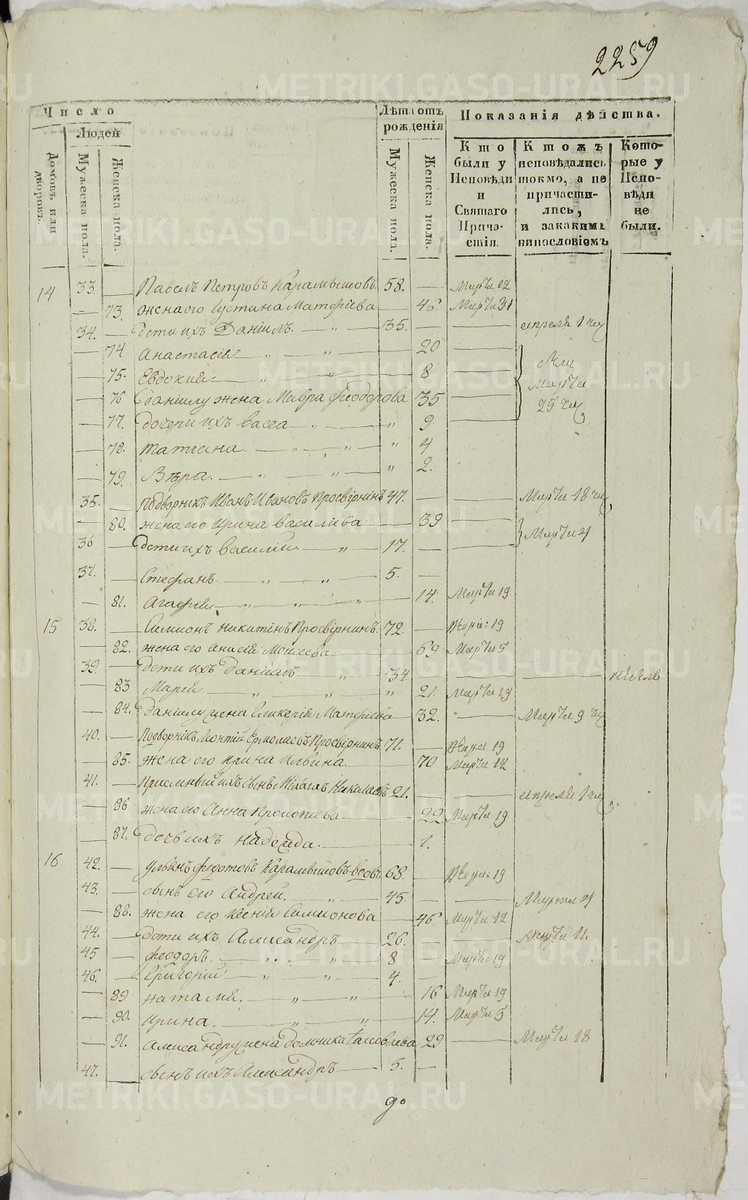 2259
Число
Людей
Домовъ или дворовъ.
Мужеска пола.
Женска пола.
Лѣта отъ рожденія
Мужеска пола.
Женска пола.
Показанія дѣйства.
Кто были у Исповѣди и Святаго Причастія.
Ктожъ исповѣдались токмо, а не причастились, и за какимъ винословіемъ
Которые у Исповѣди не были.
14 33. — Павелъ Петровъ Карамышовъ 58. — Марта 12
— 73. жена его Іустина Матфіева — 46 Марта 31
34. — дети ихъ Даніилъ — „ — 35. — апреля 1 чи
— 74 Анастасія — „ — „ — 20
— 75. Евдокия — „ — „ — 8 Марта
— 76 Даниилу жена Мавра Феодорова 35 25 чи
— 77. дочери ихъ Васса — „ — „ 9
— 78. Татиана — „ — „ — „ 4
— 79. Вѣра — „ — „ — „ 2.
35. — Подворникъ Иванъ Ивановъ Просвирнинъ 47. — Марта 18 чи
— 80. жена его Ирина Василиева — 39
36 — дети ихъ Василий — „ — 17. — Марта 4
37. — Стефанъ — „ — „ — 5. —
— 81. Агафия — „ — „ — „ 14. Марта 19
15 38. — Симионъ Никитинъ Просвирнинъ 72. — 19
— 82. жена его Анисия Моисеева — 69 Марта 5
39. — дети ихъ Даниилъ — „ — 34
— 83 Мария — „ — „ — „ 21. Марта 19
— 84. Даниилу жена Гликерия Матфиева 32. — Марта 9 чи
40. — Подворникъ Леонтий Ермолаевъ Просвирнинъ 71. — 19
— 85. жена его Ирина Ильина — 70 Марта 12
41. — Приемный ихъ сынъ Николаевъ 21. — апреля 1 чи
— 86 жена его Анна Прокопиева — 22 Марта 19
— 87. дочь ихъ Надежда — 1.
16 42. — Ульянъ Федотовъ Карамышовъ вдовъ 68. — 19
43. — сынъ его Андрей — „ — 45. — Марта 4
— 88. жена его Ксения Симионова — 46 Марта 12
44. — дети ихъ Александръ — 26. — 11.
45 — Феодоръ — „ — „ — 8 — Марта 19
46. — Григорий — „ — „ — 4. —
— 89 Наталия — „ — „ — 16 Марта 19
— 90. Ирина — „ — „ — 14. Марта 5
— 91. Александру жена Домника Иаковлева 29 — Марта 18
47. — сынъ ихъ Александръ — 5. —
METRIKI.GASO-URAL.RU